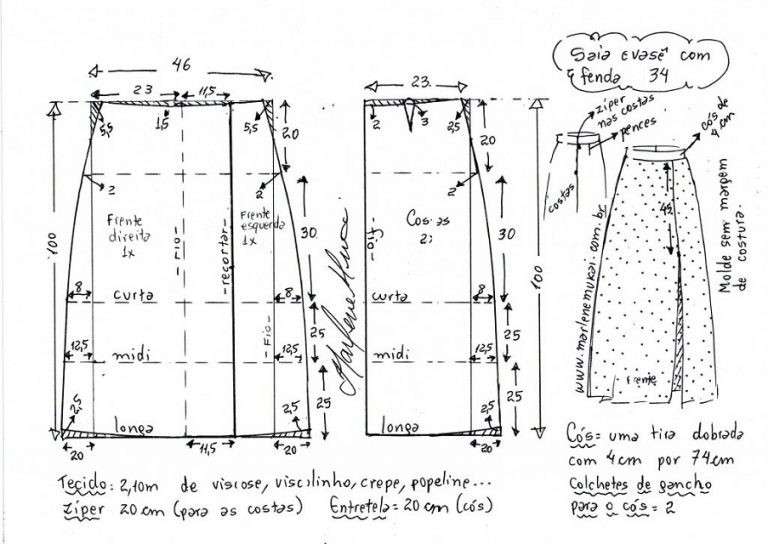 Saia evasê com
fenda 34
46
23
11,5
5,5
1,5
5,5
20
2
2
Frente
direita
1x
Frente
esquerda
1x
-Fio-
-recortar-
-Fio-
30
100
8
curta
8
25
12,5
midi
12,5
25
2,5
longa
2,5
20
11,5
20
Marlene Mukai
23
2
3
2,5
20
2
Costas
2x
-Fio-
30
100
curta
8
25
midi
12,5
25
longa
2,5
20
zíper
nas costas
pences
cós de
4 cm
costas
45
Frente
www.marlenemukai.com.br
Molde sem margem
de costura.
Cós = uma tira dobrada
com 4cm por 74cm
Colchetes de gancho
para o cós = 2
Tecido: 2,10m de viscose, viscolinho, crepe, popeline...
Zíper 20 cm (para as costas) Entretela = 20 cm (cós)